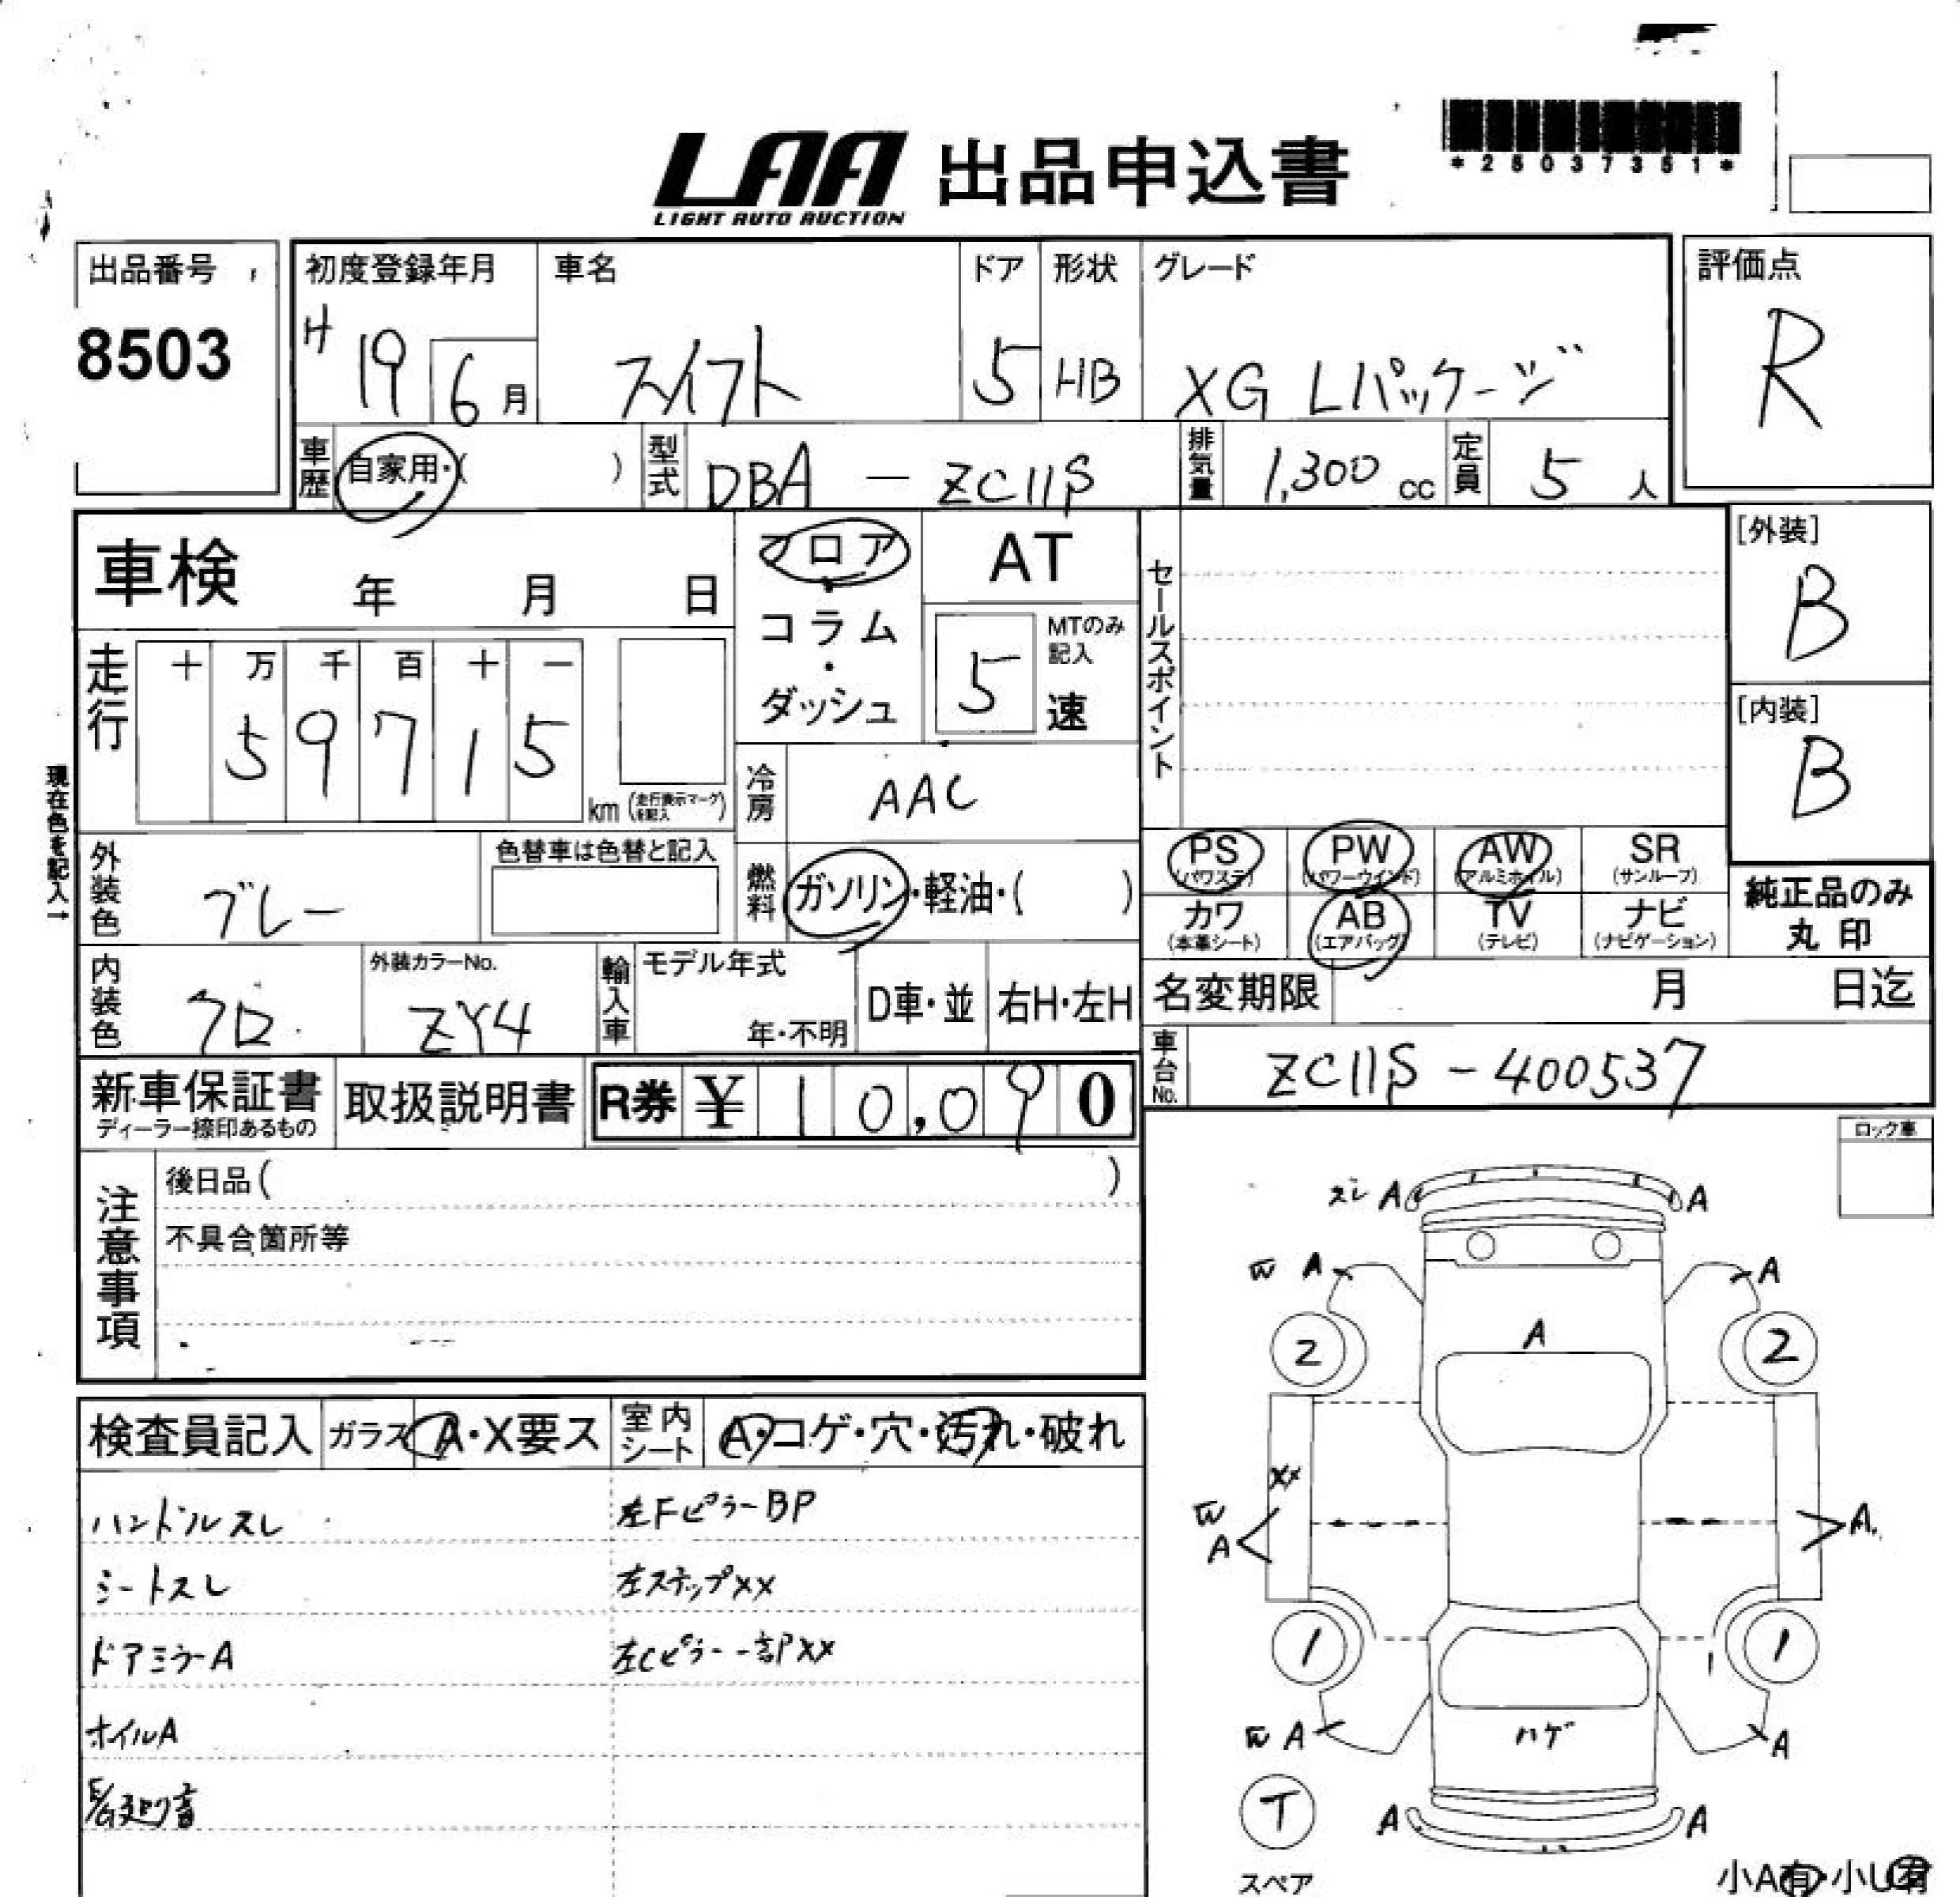 LAA 出品申込書
LIGHT AUTO AUCTION
出品番号
8503
初度登録年月
H 19 6 月
車名
スイフト
ドア
5
形状
HB
グレード
XG Lパッケージ
評価点
R
車歴 自家用・( )
型式 DBA - ZC11S
排気量 1,300 cc
定員 5 人
車検 年 月 日
フロア・コラム・ダッシュ
AT
5 MTのみ記入 速
セールスポイント
[外装]
B
[内装]
B
走行 十 万 千 百 十 一
5 9 7 1 5
km (走行表示マークを記入)
現在色を記入→
冷房 AAC
外装色 グレー
色替車は色替と記入
燃料 ガソリン・軽油・( )
PS (パワステ)
PW (パワーウインド)
AW (アルミホイル)
SR (サンルーフ)
カワ (本革シート)
AB (エアバッグ)
TV (テレビ)
ナビ (ナビゲーション)
純正品のみ
丸印
内装色 クロ
外装カラーNo.
ZY4
輸入車 モデル年式
年・不明
D車・並
右H・左H
名変期限 月 日迄
車台No. ZC11S - 400537
新車保証書
ディーラー捺印あるもの
取扱説明書
R券 ¥ 10,090
ロック車
注意事項
後日品( )
不具合箇所等
検査員記入
ガラス A・X要ス
室内シート A・コゲ・穴・汚れ・破れ
ハンドルスレ
左FピラーBP
シートスレ
左ステップXX
ドアミラーA
左Cピラー一部PXX
ホイルA
スレ A A
W A A
2 A 2
XX
W
A A
1 1
W A ハゲ A
T
A A
スペア
小A有・小U有